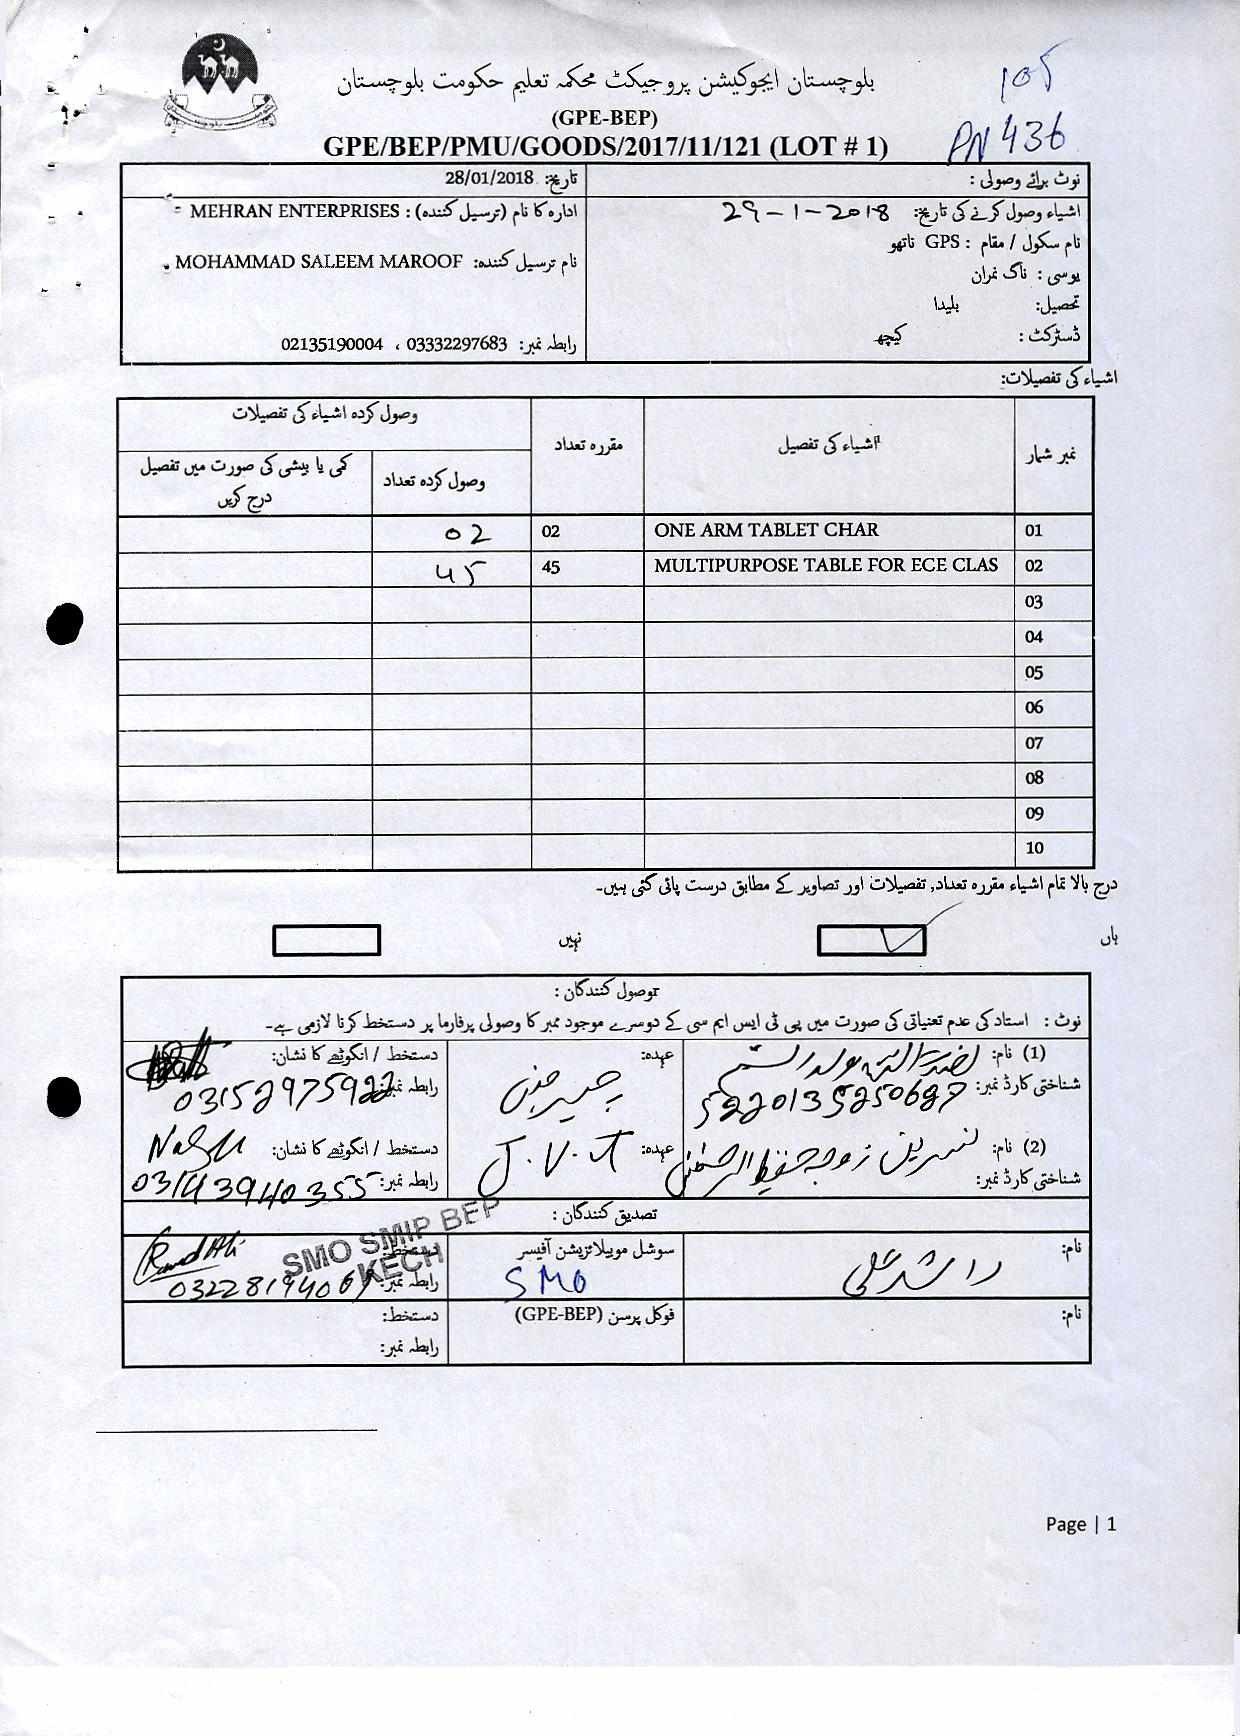 بلوچستان ایجوکیشن پروجیکٹ محکمہ تعلیم حکومت بلوچستان
105
(GPE-BEP)
GPE/BEP/PMU/GOODS/2017/11/121 (LOT # 1)
PN 436
نوٹ برائے وصولی :
تاریخ: 28/01/2018
اشیاء وصول کرنے کی تاریخ: 29-1-2018
ادارہ کا نام (ترسیل کنندہ) : MEHRAN ENTERPRISES
نام سکول / مقام : GPS ناتھو
نام ترسیل کنندہ: MOHAMMAD SALEEM MAROOF
یوسی : ناگ نمران
تحصیل: بلیدا
ڈسٹرکٹ : کیچھ
رابطہ نمبر: 03332297683 ، 02135190004
اشیاء کی تفصیلات:
نمبر شمار اشیاء کی تفصیل مقررہ تعداد وصول کردہ اشیاء کی تفصیلات
وصول کردہ تعداد کمی یا بیشی کی صورت میں تفصیل درج کریں
01 ONE ARM TABLET CHAR 02 02
02 MULTIPURPOSE TABLE FOR ECE CLAS 45 45
03
04
05
06
07
08
09
10
درج بالا تمام اشیاء مقررہ تعداد, تفصیلات اور تصاویر کے مطابق درست پائی گئی ہیں۔
ہاں نہیں
وصول کنندگان :
نوٹ : استاد کی عدم تعنیاتی کی صورت میں پی ٹی ایس ایم سی کے دوسرے موجود ممبر کا وصولی پرفارما پر دستخط کرنا لازمی ہے۔
(1) نام: عہدہ: دستخط / انگوٹھے کا نشان:
شناختی کارڈ نمبر: 5220135250687 رابطہ نمبر: 03152975922
(2) نام: نسرین زوجہ حفیظ الرحمٰن عہدہ: J.V.T دستخط / انگوٹھے کا نشان:
شناختی کارڈ نمبر: رابطہ نمبر: 03143940355
تصدیق کنندگان :
SMO SMIP BEP
KECH
نام: راشد علی سوشل موبیلائزیشن آفیسر SMO دستخط:
رابطہ نمبر: 03228194069
نام: فوکل پرسن (GPE-BEP) دستخط:
رابطہ نمبر:
Page | 1